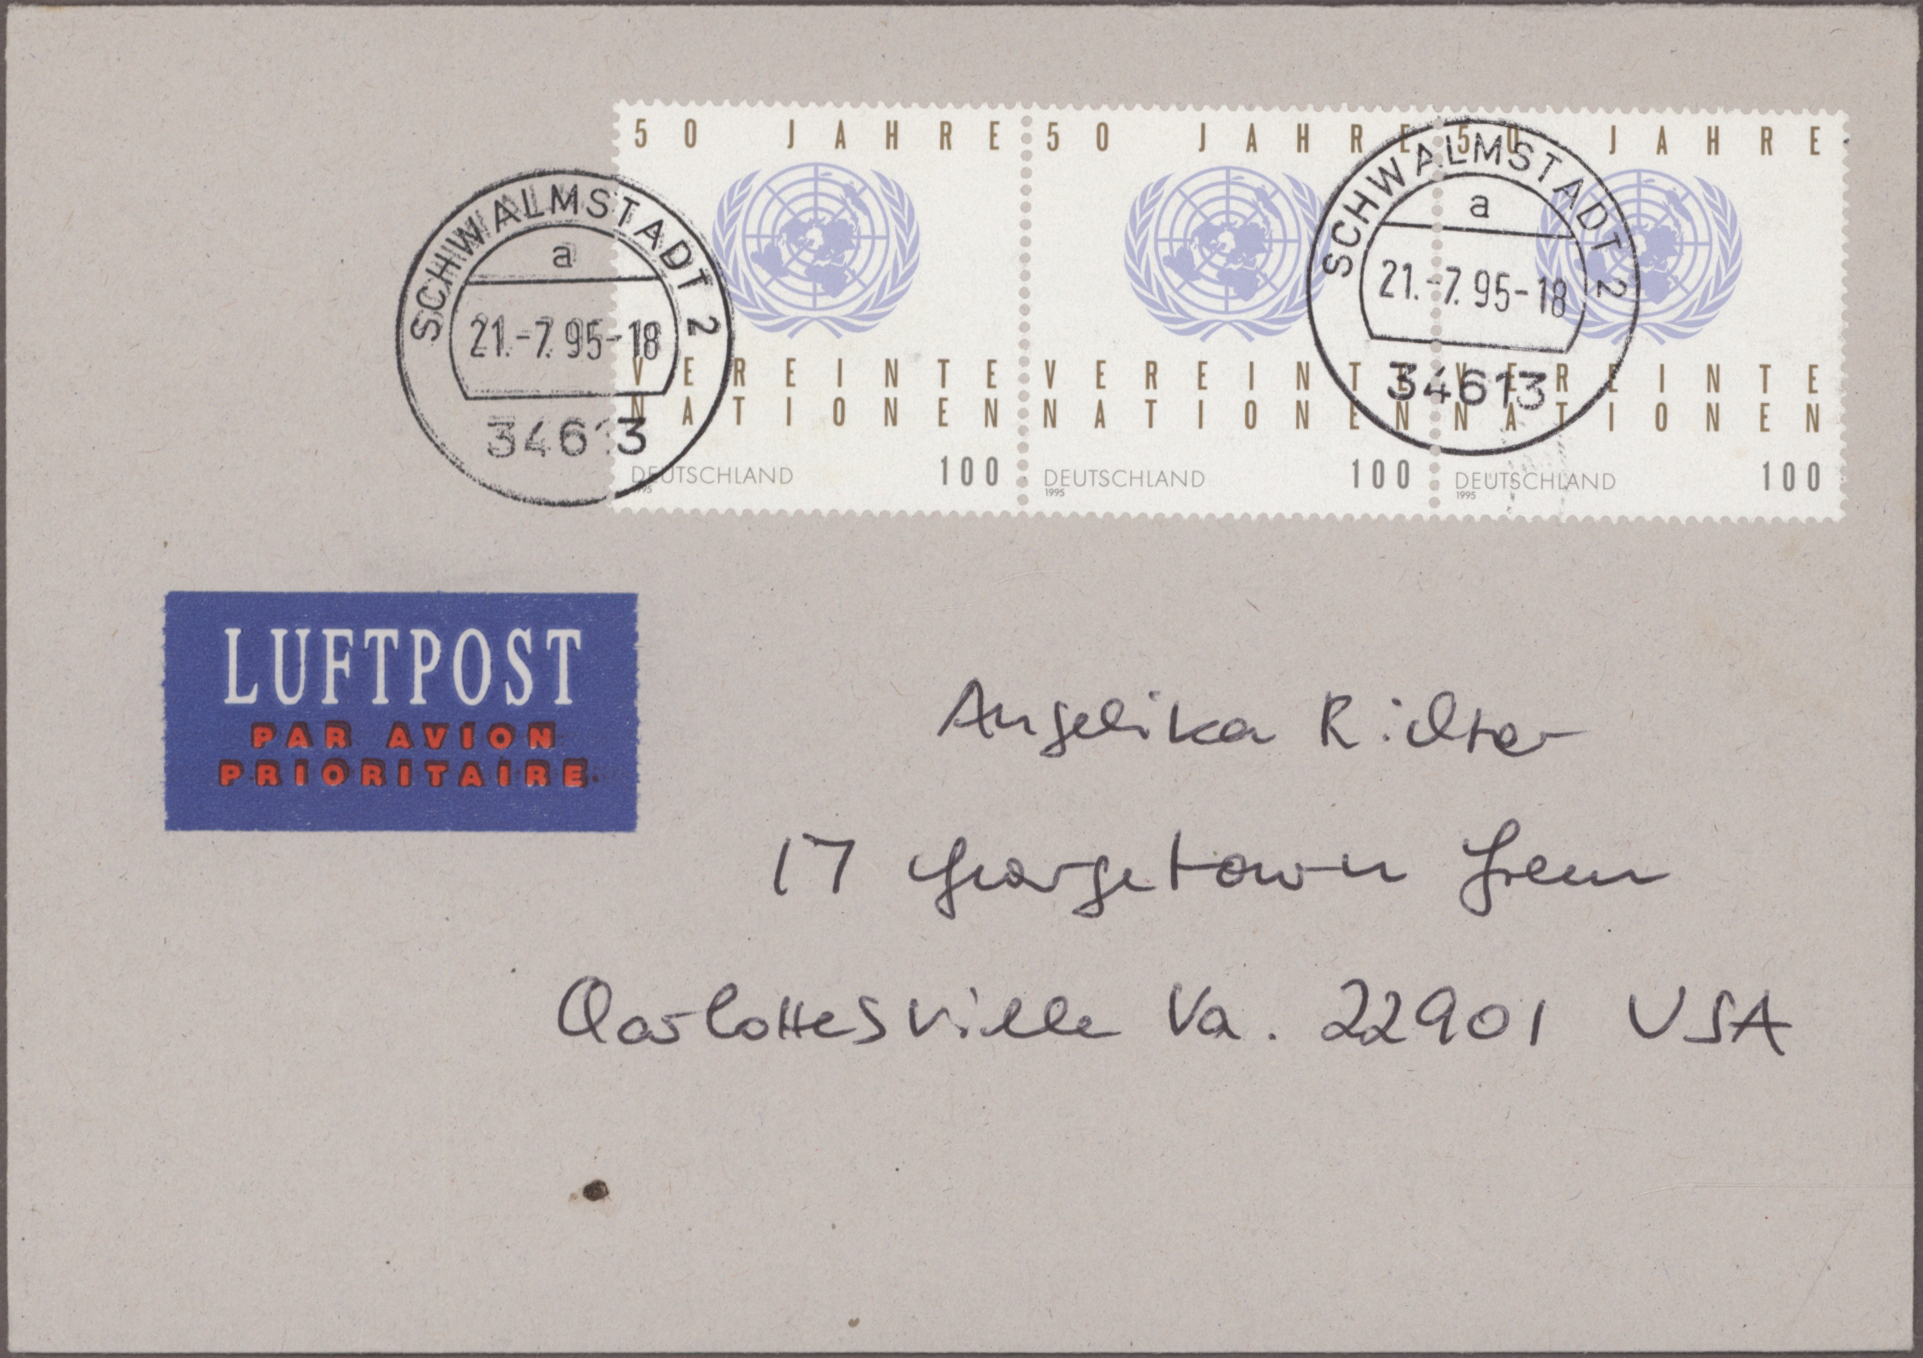 50 JAHRE
VEREINTE
NATIONEN
DEUTSCHLAND 100
1995
50 JAHRE
VEREINTE
NATIONEN
DEUTSCHLAND 100
1995
50 JAHRE
VEREINTE
NATIONEN
DEUTSCHLAND 100
1995
SCHWALMSTADT 2
a
21.-7.95-18
34613
SCHWALMSTADT 2
a
21.-7.95-18
34613
LUFTPOST
PAR AVION
PRIORITAIRE
Angelika Richter
17 Georgetown Green
Charlottesville Va. 22901 USA